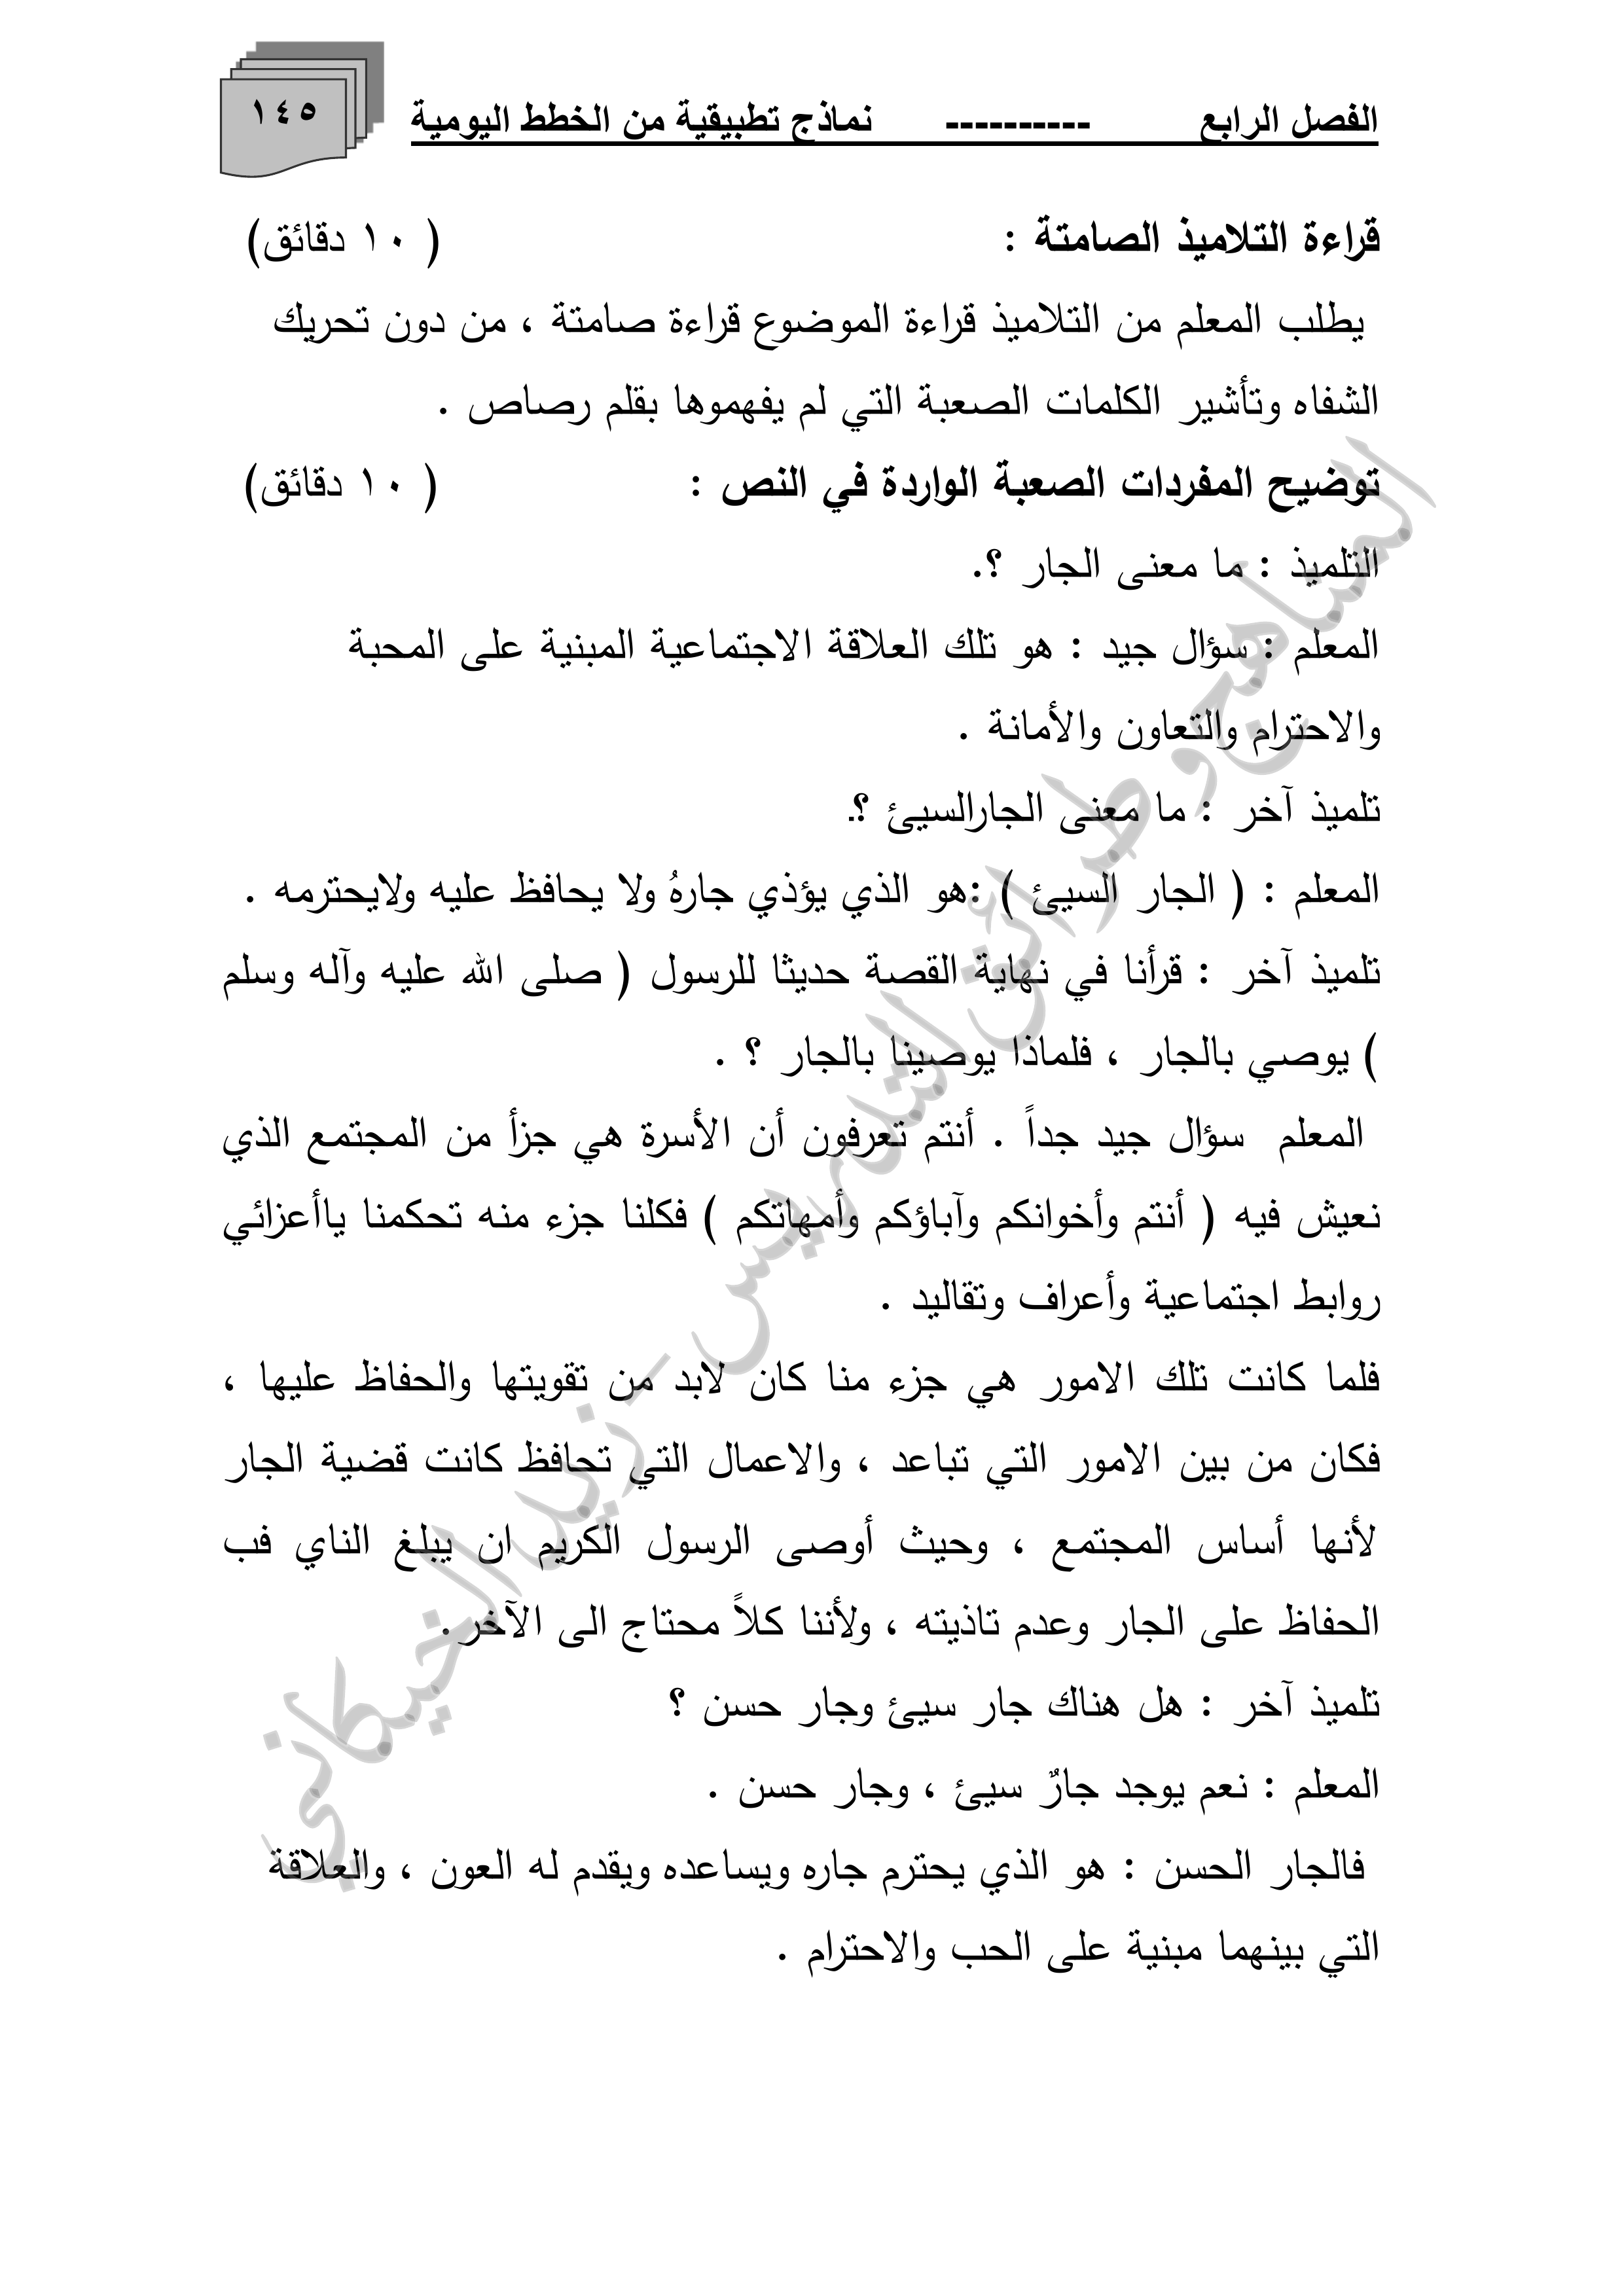 الفصل الرابع ---------- نماذج تطبيقية من الخطط اليومية
١٤٥
قراءة التلاميذ الصامتة : ( ١٠ دقائق)
يطلب المعلم من التلاميذ قراءة الموضوع قراءة صامتة ، من دون تحريك
الشفاه وتأشير الكلمات الصعبة التي لم يفهموها بقلم رصاص .
توضيح المفردات الصعبة الواردة في النص : ( ١٠ دقائق)
التلميذ : ما معنى الجار ؟.
المعلم : سؤال جيد : هو تلك العلاقة الاجتماعية المبنية على المحبة
والاحترام والتعاون والأمانة .
تلميذ آخر : ما معنى الجارالسيئ ؟.
المعلم : ( الجار السيئ ) :هو الذي يؤذي جارهُ ولا يحافظ عليه ولايحترمه .
تلميذ آخر : قرأنا في نهاية القصة حديثا للرسول ( صلى الله عليه وآله وسلم
) يوصي بالجار ، فلماذا يوصينا بالجار ؟ .
المعلم سؤال جيد جداً . أنتم تعرفون أن الأسرة هي جزأ من المجتمع الذي
نعيش فيه ( أنتم وأخوانكم وآباؤكم وأمهاتكم ) فكلنا جزء منه تحكمنا ياأعزائي
روابط اجتماعية وأعراف وتقاليد .
فلما كانت تلك الامور هي جزء منا كان لابد من تقويتها والحفاظ عليها ،
فكان من بين الامور التي تباعد ، والاعمال التي تحافظ كانت قضية الجار
لأنها أساس المجتمع ، وحيث أوصى الرسول الكريم ان يبلغ الناي فب
الحفاظ على الجار وعدم تاذيته ، ولأننا كلاً محتاج الى الآخر.
تلميذ آخر : هل هناك جار سيئ وجار حسن ؟
المعلم : نعم يوجد جارٌ سيئ ، وجار حسن .
فالجار الحسن : هو الذي يحترم جاره ويساعده ويقدم له العون ، والعلاقة
التي بينهما مبنية على الحب والاحترام .
المناهج وطرائق التدريس - زيد الخيكاني